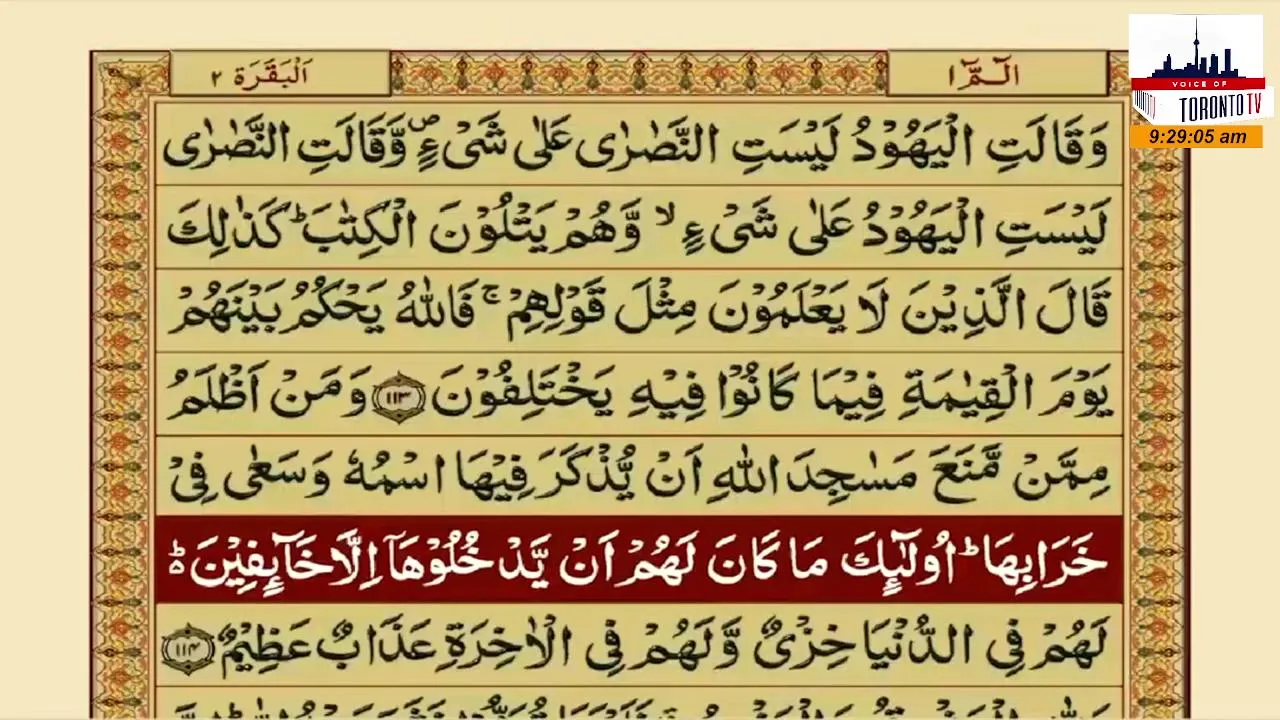 الٓمّٓ ۱
اَلْبَقَرَة ۲
VOICE OF
TORONTO TV
9:29:05 am
وَقَالَتِ الْیَهُوْدُ لَیْسَتِ النَّصٰرٰی عَلٰی شَیْءٍ ۪ وَّقَالَتِ النَّصٰرٰی
لَیْسَتِ الْیَهُوْدُ عَلٰی شَیْءٍ ۙ وَّهُمْ یَتْلُوْنَ الْكِتٰبَ ؕ كَذٰلِكَ
قَالَ الَّذِیْنَ لَا یَعْلَمُوْنَ مِثْلَ قَوْلِهِمْ ۚ فَاللّٰهُ یَحْكُمُ بَیْنَهُمْ
یَوْمَ الْقِیٰمَةِ فِیْمَا كَانُوْا فِیْهِ یَخْتَلِفُوْنَ ﴿۱۱۳﴾ وَمَنْ اَظْلَمُ
مِمَّنْ مَّنَعَ مَسٰجِدَ اللّٰهِ اَنْ یُّذْكَرَ فِیْهَا اسْمُهٗ وَسَعٰی فِیْ
خَرَابِهَا ؕ اُولٰٓئِكَ مَا كَانَ لَهُمْ اَنْ یَّدْخُلُوْهَاۤ اِلَّا خَآئِفِیْنَ ؕ۬
لَهُمْ فِی الدُّنْیَا خِزْیٌ وَّلَهُمْ فِی الْاٰخِرَةِ عَذَابٌ عَظِیْمٌ ﴿۱۱۴﴾